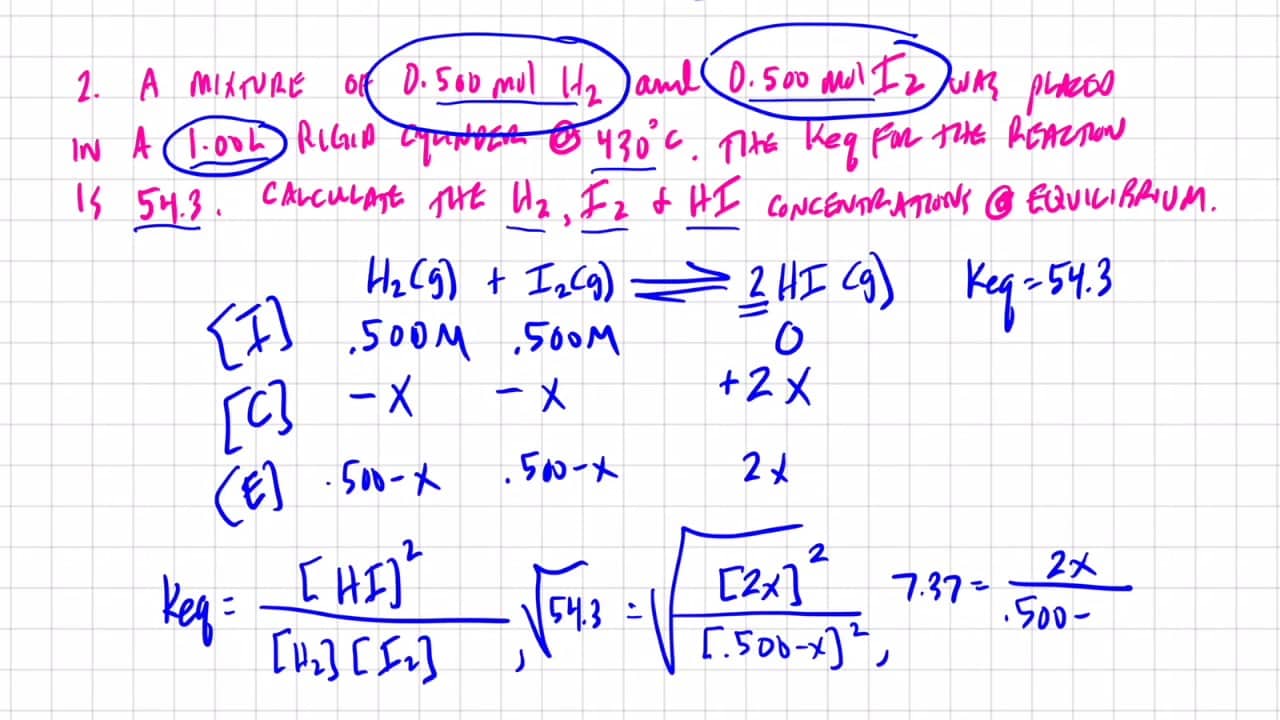 2. A MIXTURE OF 0.500 mol H₂ and 0.500 mol I₂ WAS PLACED
IN A 1.00L RIGID CYLINDER @ 430°C. THE Keq FOR THE REACTION
IS 54.3. CALCULATE THE H₂, I₂ & HI CONCENTRATIONS @ EQUILIBRIUM.
H₂(g) + I₂(g) ⇌ 2HI (g) Keq = 54.3
[I] .500M .500M 0
[C] -X -X +2X
[E] .500-X .500-X 2X
Keq = [HI]² / [H₂][I₂] , √54.3 = √([2X]² / [.500-X]²) , 7.37 = 2X / .500-